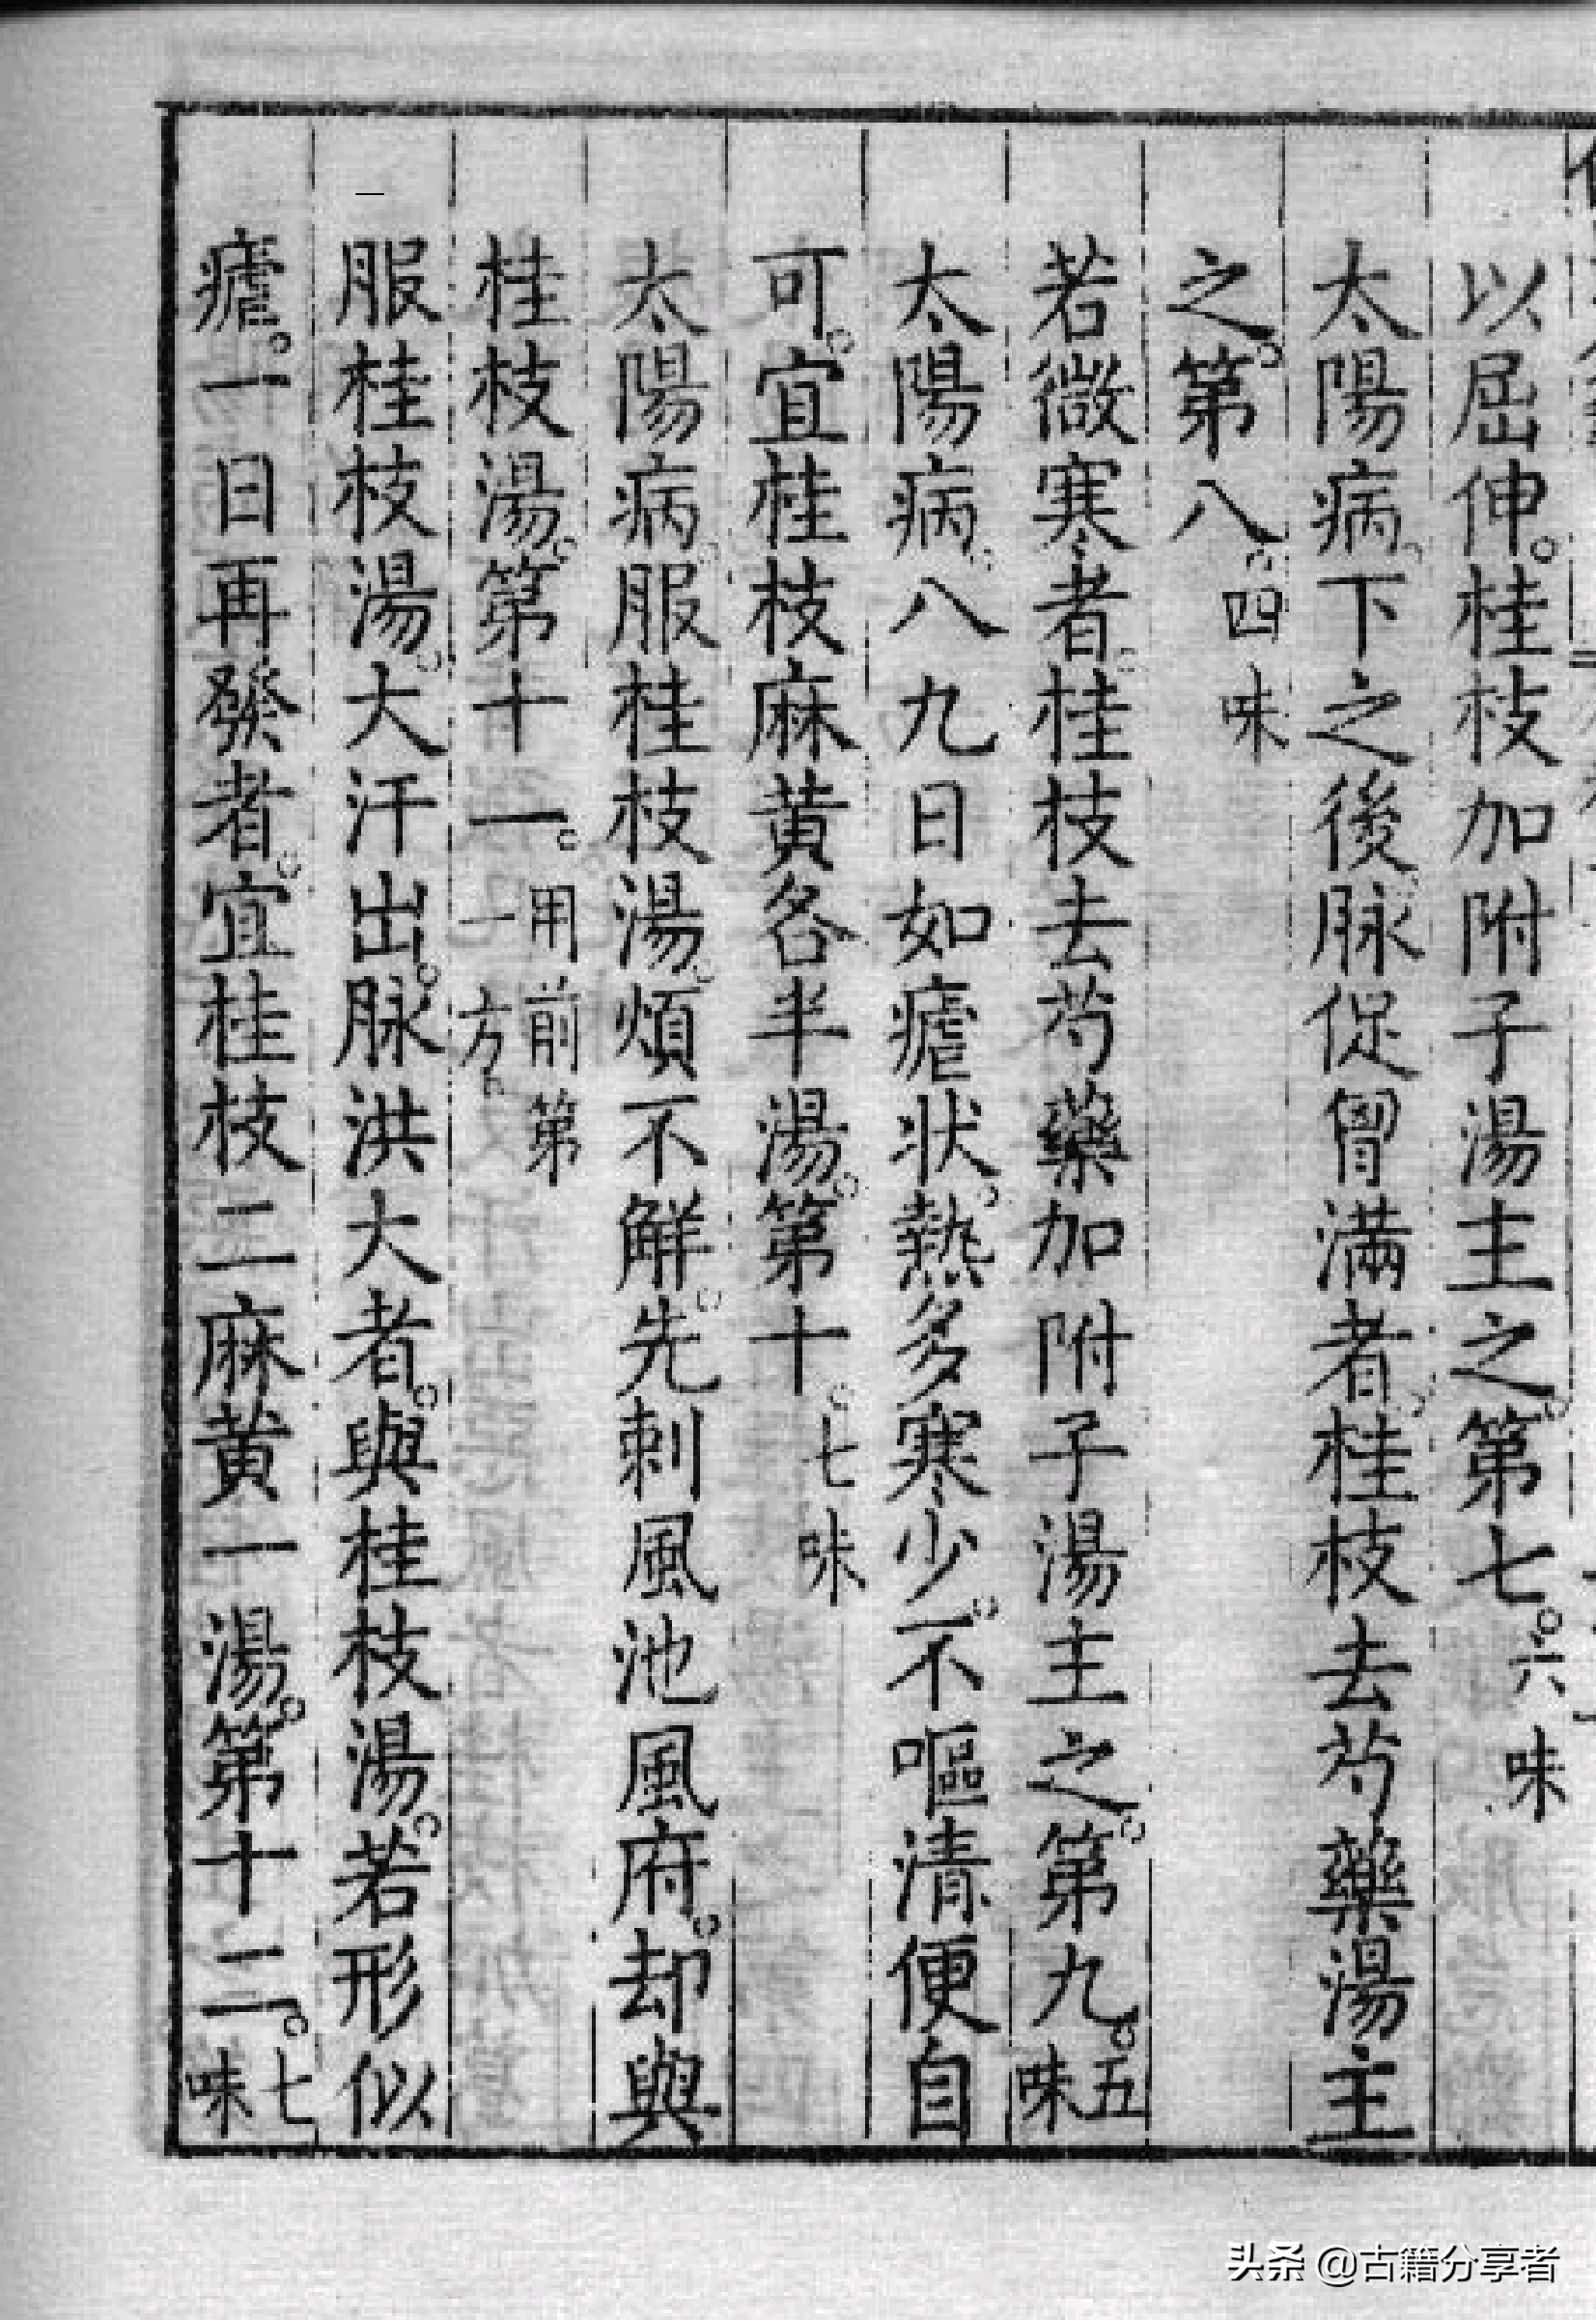 以屈伸。桂枝加附子湯主之。第七。六味
太陽病。下之後。脉促胷滿者。桂枝去芍藥湯主
之。第八。四味
若微寒者。桂枝去芍藥加附子湯主之。第九。五味
太陽病。八九日如瘧狀。熱多寒少。不嘔清便自
可。宜桂枝麻黄各半湯。第十。七味
太陽病。服桂枝湯。煩不解。先刺風池風府。却與
桂枝湯。第十一。用前第一方。
服桂枝湯。大汗出。脉洪大者。與桂枝湯。若形似
瘧。一日再發者。宜桂枝二麻黄一湯。第十二。七味
头条 @古籍分享者